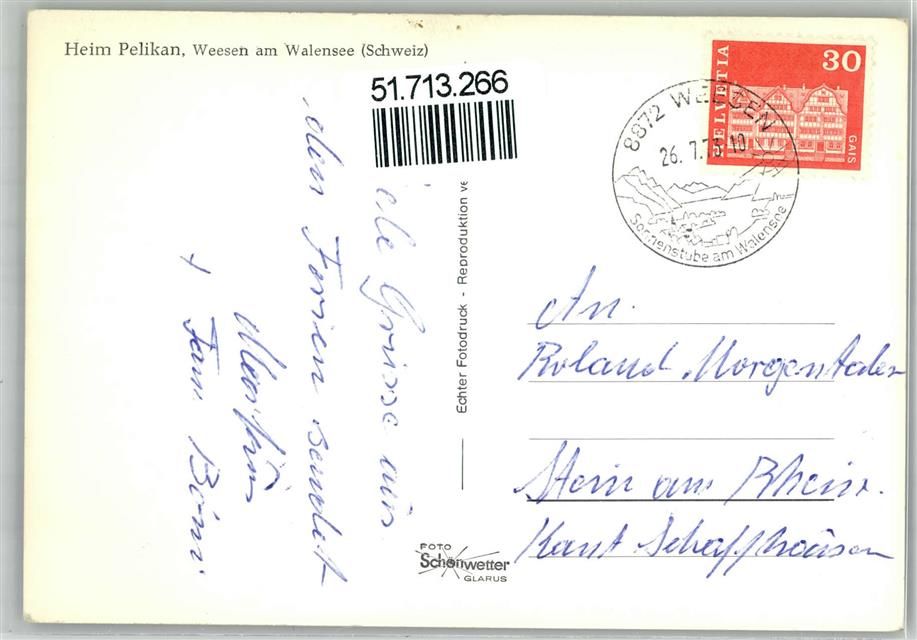 Heim Pelikan, Weesen am Walensee (Schweiz)
51.713.266
HELVETIA
30
GAIS
8872 WEESEN
26. 7.73-10
Sonnenstube am Walensee
iele Grüsse aus
den Ferien sendet
Martin
+ Fam
Echter Fotodruck - Reproduktion ve
FOTO
Schönwetter
GLARUS
An.
Roland Morgentaler
Stein am Rhein.
Kant Schaffhausen